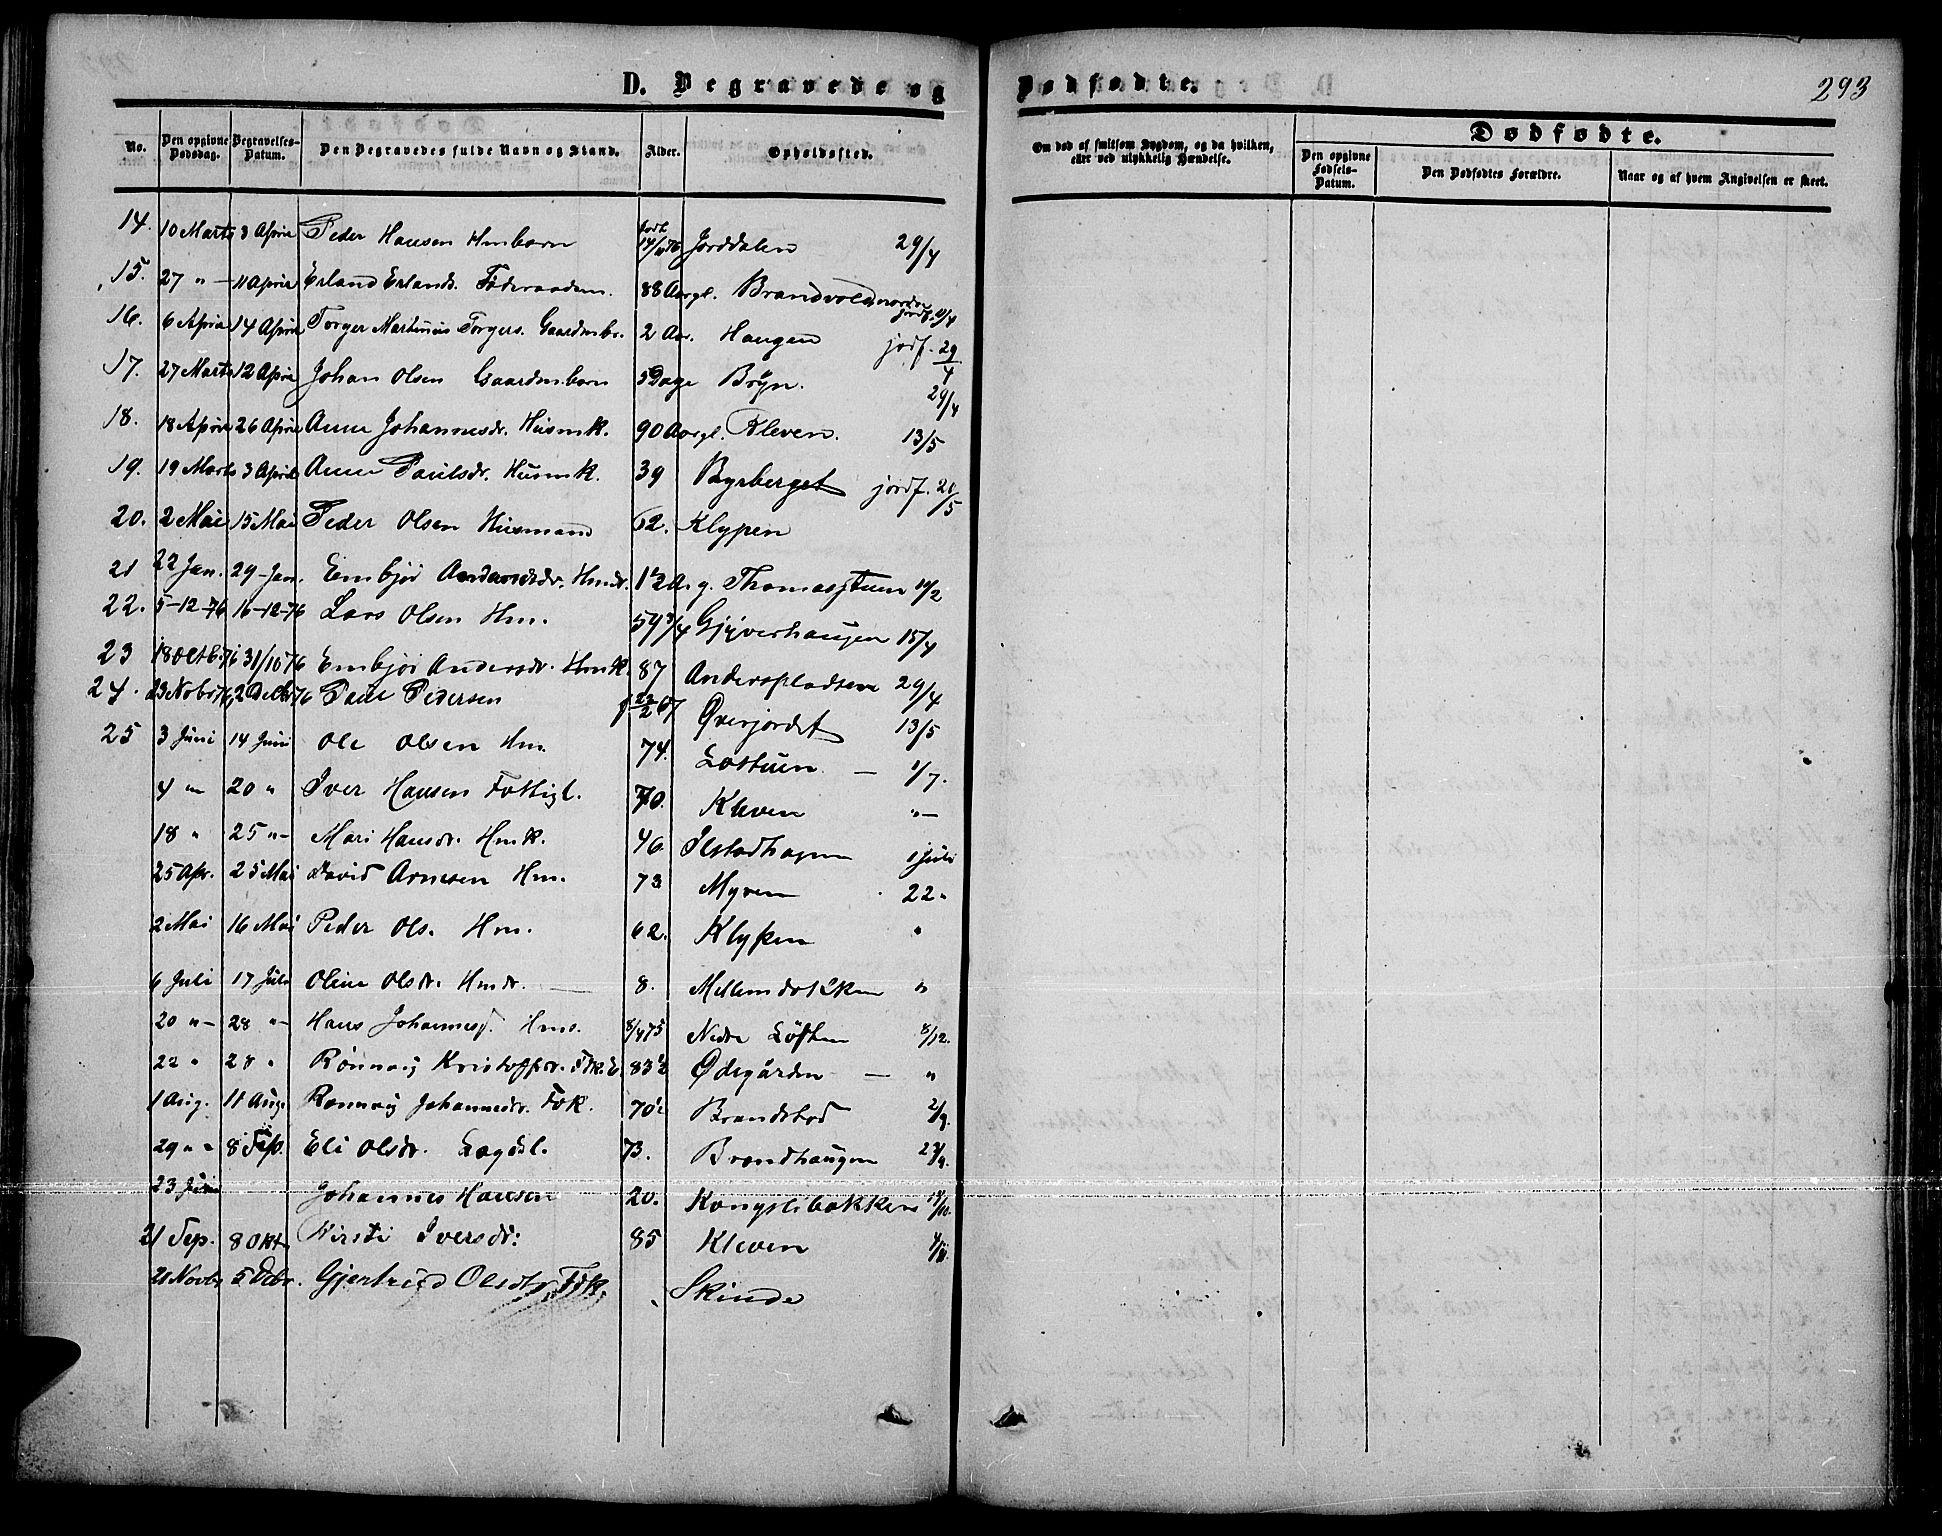 293
D. Begravede og Dødfødte.
No. Den opgivne Dødsdag. Begravelses-Datum. Den Begravedes fulde Navn og Stand. Alder. Opholdssted.
Om død af smitsom Sygdom, og da hvilken, eller ved ulykkelig Hændelse.
Dødfødte.
Den opgivne Fødsels-Datum. Den Dødfødtes Forældre. Naar og af hvem Angivelsen er skeet.
14. 10 Marts 3 April Peder Hansen Hmbarn Jorddalen 29/4
15. 27 "— 11 April Erland Erlands. Føderaadsm. 88 Aargl. Brandvold nordre
16. 6 April 14 April Torger Martinius Torgers. Gaardmbr. 2 Aar. Haugen jordf. 29/4
17. 27 Marts 12 April Johan Olsen Gaardmbarn 5 Dage Bryn. 29/4
18. 18 April 26 April Anne Johannesdr. Husmk. 90 Aargl. Kleven. 13/5
19. 19 Marts 3 April Anne Paulsdr. Husmk. 39 Byrberget jordf. 20/5
20. 2 Mai 15 Mai Peder Olsen Husmand 62. Klypen
21 22 Jan. 29 Jan. Embjør Andersdr. Hmdr. 1½ A. g. Thomasstuen
22. 5-12-76 16-12-76 Lars Olsen Hm. 59 3/4 Gjyverhaugen 15/4
23 18 Octb. 76 31/10 76 Embjør Andersdr. Hmk. 87 Anderspladsen 29/4
24. 23 Novbr 76 2 Decbr 76 Paul Pedersen Øverjordet 13/5
25 3 Juni 14 Juni Ole Olsen Hm. 74. Lostuen — 1/7.
4 "— 20 " Iver Hansen Fattigl. 70. Kleven "—
18 " 25 "— Mari Hansdr. Hmk. 46. Ilstadhagen 1 Juli
25 Apr. 25 Mai David Arnesen Hm. 73 Myren 22 "
2 Mai 16 Mai Peder Ols. Hm. 62. Klypen "
6 Juli 17 Juli Oline Olsdr. Hmdr. — 8. Mellemdokken "
20 "— 28 "— Hans Johannes. Hms. 8/4 75 Nedre Løften 8/12.
22 " 28 " Rønnoug Kristoffersdr. 83½ Ødegården — "
1 Aug. 11 Aug. Rønnoug Johannesdr. Fdk. 70½ Brandstad 2/9.
29 " " 8 Sep. Eli Olsdr. Lægdsl. 73. Brandhaugen 23/9.
23 Juni Johannes Hansen 20. Kongslibakken
21 Sep. 8 Okt. Kirsti Iversdr: 85 Kleven
21 Novbr 5 Debr. Gjertrud Olsdtr. Fdk. Skinde